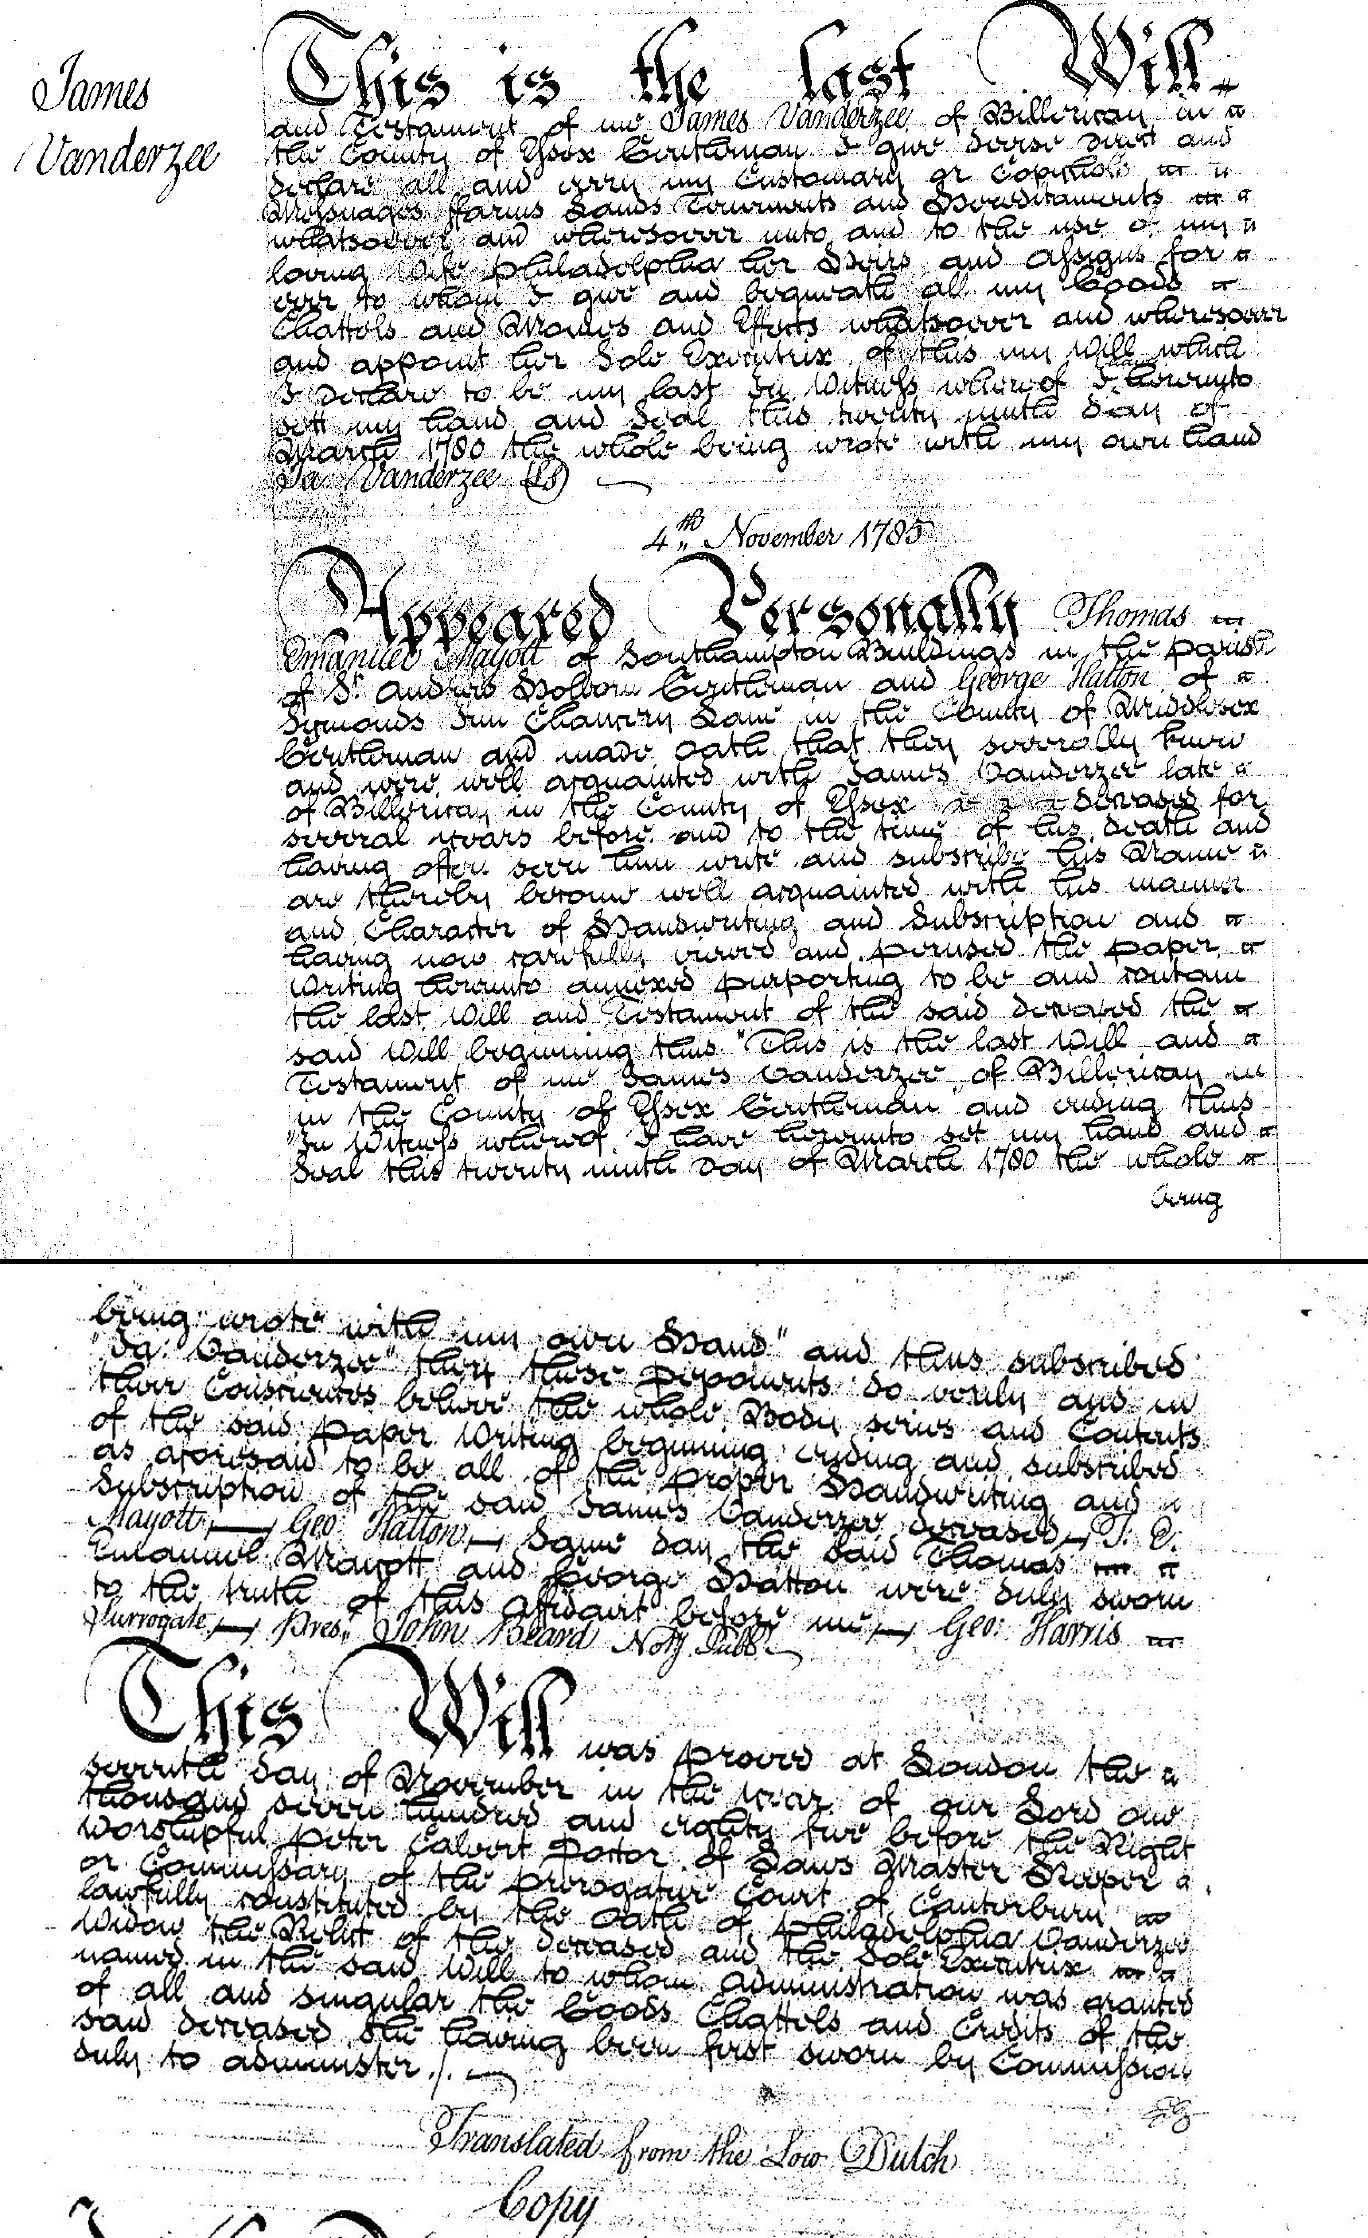 James
Vanderzee
This is the last Will
and Testament of me James Vanderzee of Billericay in
the County of Essex Gentleman I give devise direct and
declare all and every my Customary or Copyhold
Messuages ffarms Lands Tenements and Hereditaments
whatsoever and wheresoever unto and to the use of my
loving Wife Philadelphia her Heirs and Assigns for
ever to whom I give and bequeath all my Goods
Chattels and Monies and Effects whatsoever and wheresoever
and appoint her Sole Executrix of this my Will which
I declare to be my last In Witness whereof I have hereunto
sett my hand and Seal this twenty ninth Day of
March 1780 the whole being wrote with my own hand
Ja: Vanderzee (LS)
4th November 1785
Appeared Personally Thomas
Emanuel Mayott of Southampton Buildings in the parish
of St. Andrews Holborn Gentleman and George Hatton of
Symonds Inn Chancery Lane in the County of Middlesex
Gentleman and made Oath that they severally knew
and were well acquainted with James Vanderzee late
of Billericay in the County of Essex deceased for
several years before and to the time of his death and
having often seen him write and subscribe his Name
are thereby become well acquainted with his manner
and Character of Handwriting and Subscription and
having now carefully viewed and perused the paper
Writing hereunto annexed purporting to be and contain
the last Will and Testament of the said deceased the
said Will beginning thus "This is the last Will and
Testament of me James Vanderzee of Billericay in
in the County of Essex Gentleman" and ending thus
"In Witness whereof I have hereunto set my hand and
Seal this twenty ninth Day of March 1780 the whole
being
being wrote with my own Hand" and thus subscribed
"Ja: Vanderzee" they these Deponents do verily and in
their Consciences believe the whole Body series and Contents
of the said Paper Writing beginning ending and subscribed
as aforesaid to be all of the proper Handwriting and
Subscription of the said James Vanderzee deceased T. E.
Mayott Geo: Hatton Same day the said Thomas
Emanuel Mayott and George Hatton were duly sworn
to the truth of this affidavit before me Geo: Harris
Surrogate Pres: John Beard Noty. Pubb:
This Will was proved at London the
seventh day of November in the year of our Lord one
thousand seven hundred and eighty five before the Right
Worshipful Peter Calvert Doctor of Laws Master Keeper
or Commissary of the Prerogative Court of Canterbury
lawfully constituted by the Oath of Philadelphia Vanderzee
Widow the Relict of the deceased and the Sole Executrix
named in the said Will to whom administration was granted
of all and singular the Goods Chattels and Credits of the
said deceased she having been first sworn by Commission
duly to administer ./.
Translated from the Low Dutch
Copy